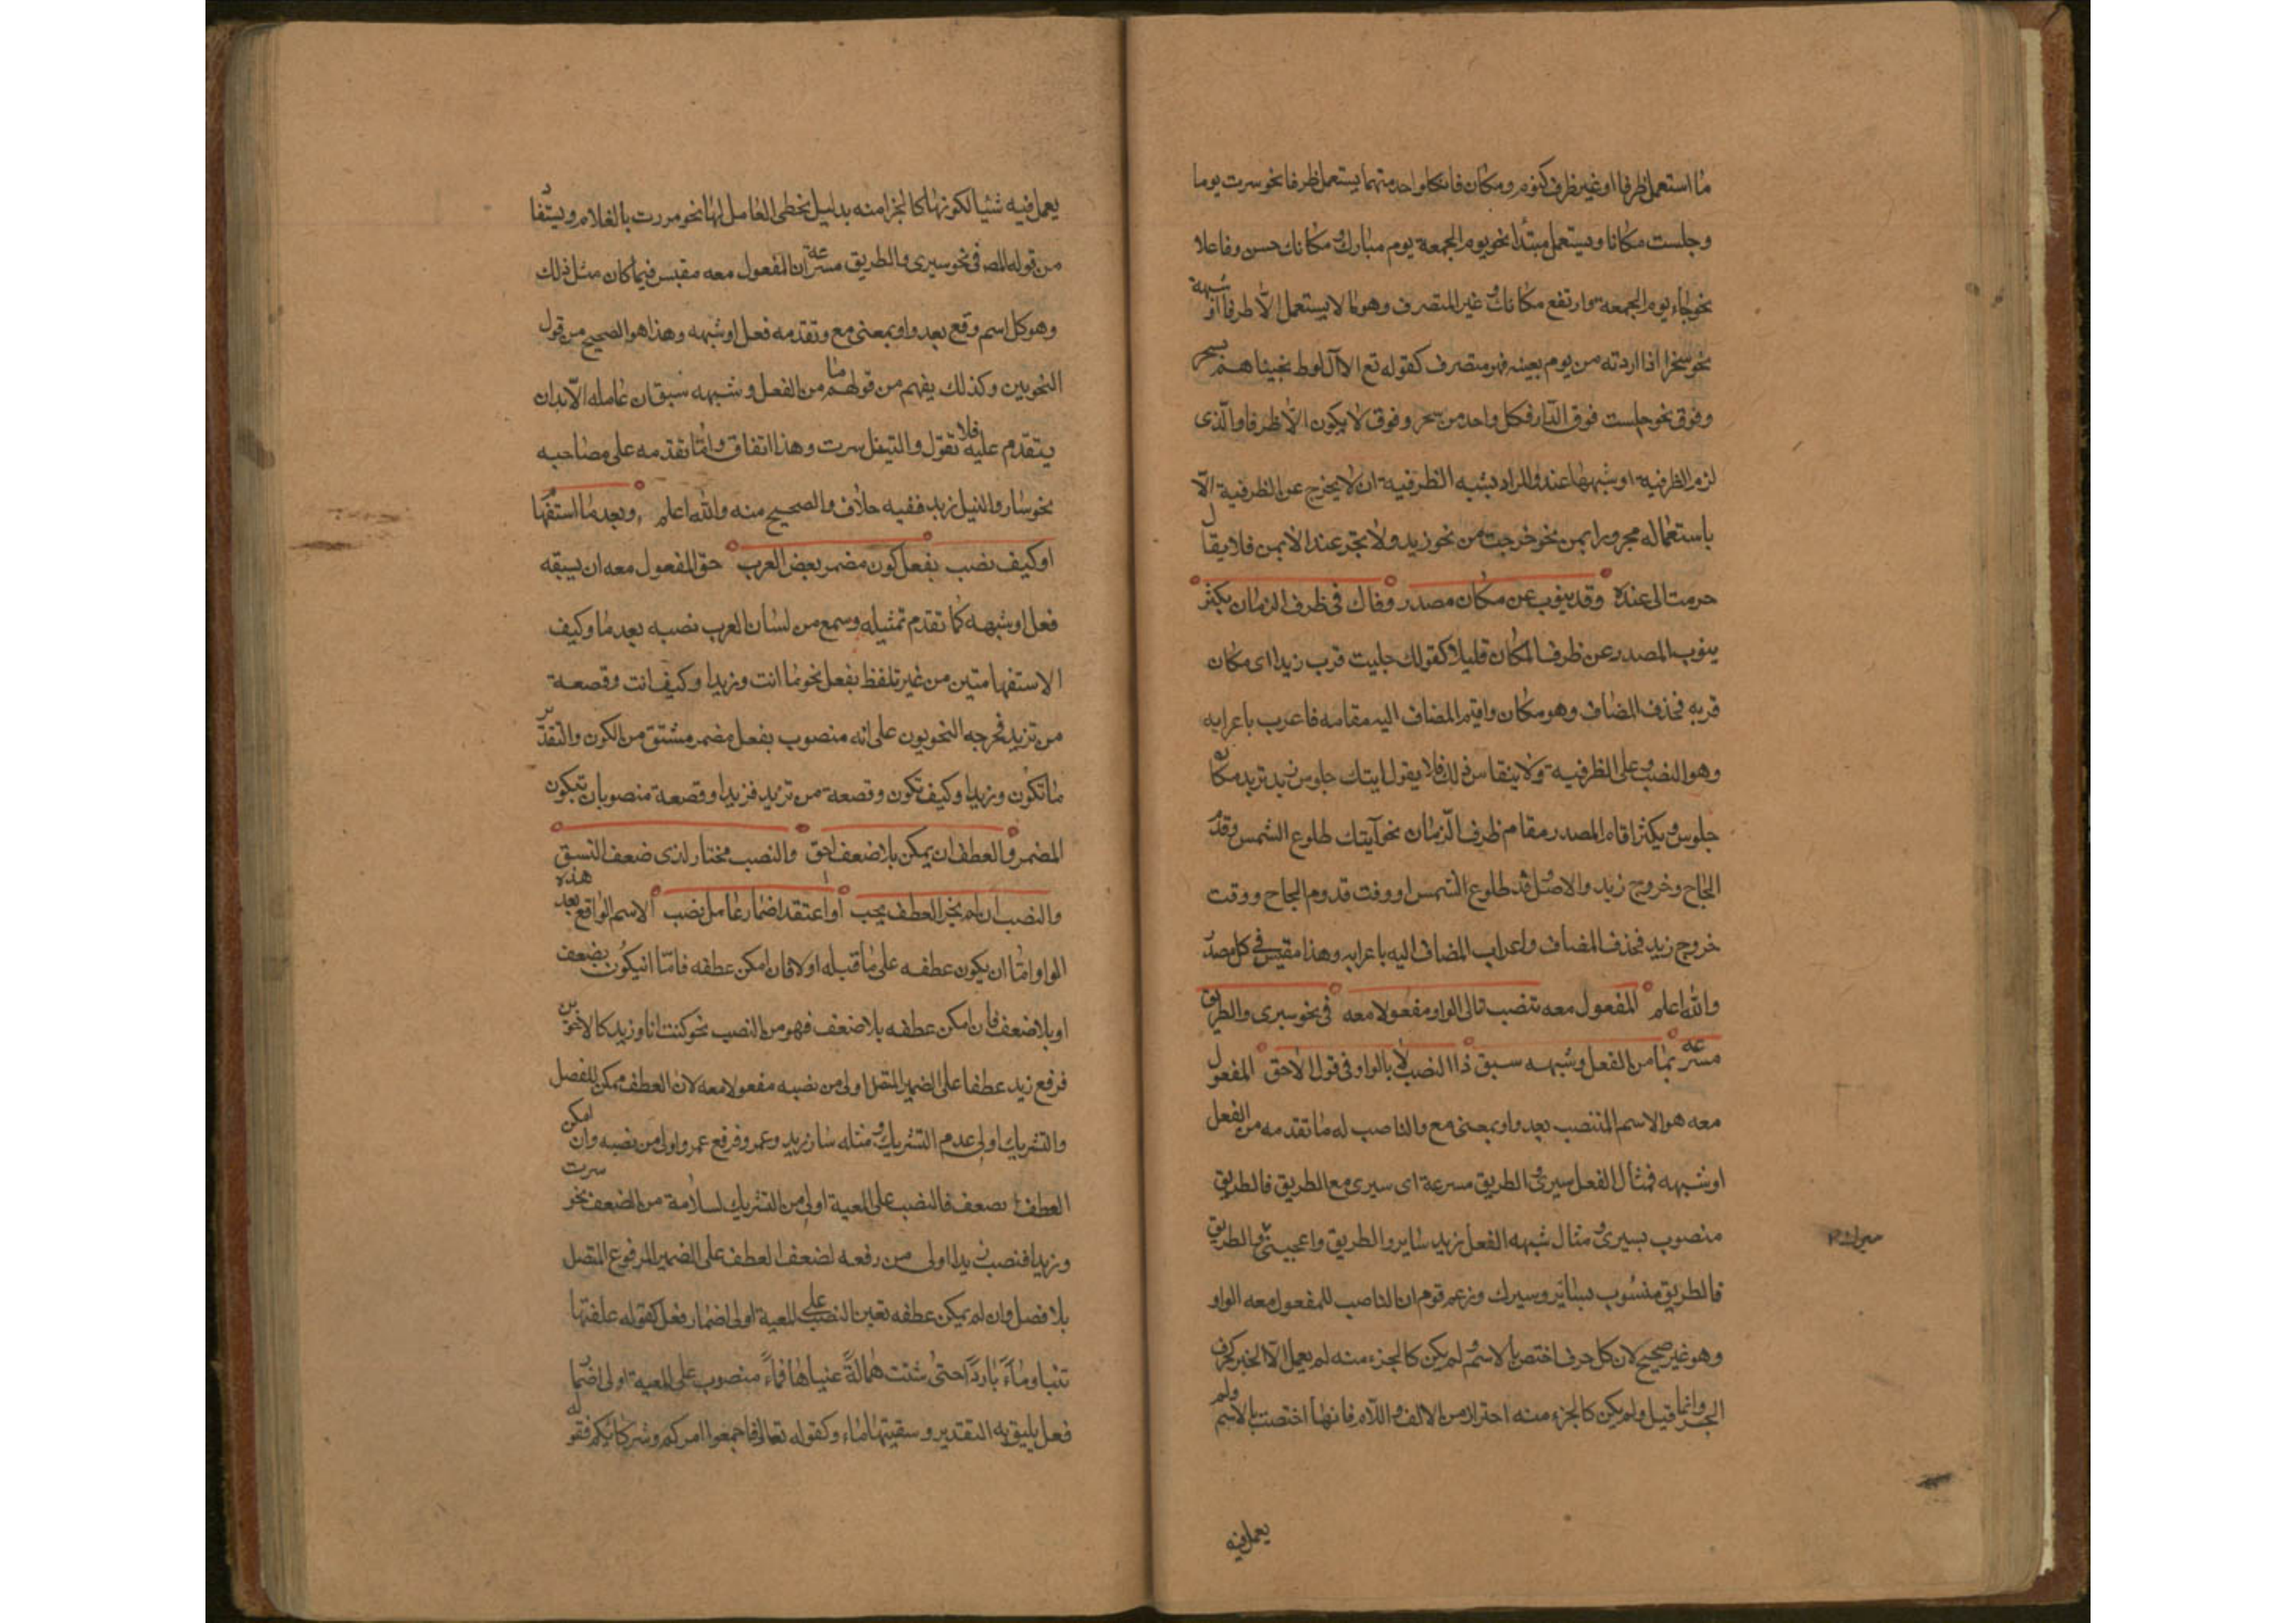 ما استعمل ظرفا او غير ظرف كيوم ومكان فان كل واحد منهما يستعمل ظرفا نحو سرت يوما
وجلست مكانا ويستعمل مبتدأ نحو يوم الجمعة يوم مبارك ومكانك حسن وفاعلا
نحو جاء يوم الجمعة وارتفع مكانك و غير المتصرف وهو ما لا يستعمل الا ظرفا او شبهه
نحو سحرا اذا اردته من يوم بعينه فهو متصرف كقوله تع الا آل لوط نجيناهم بسحر
وفوق نحو جلست فوق الدار فكل واحد من سحر وفوق لا يكون الا ظرفا والذى
لزم الظرفية او شبهها عند والمراد بشبه الظرفية ان لا يخرج عن الظرفية الا
باستعماله مجرورا بمن نحو خرجت من نحو زيد ولا يجر عند الا بمن فلا يقال
خرجت الى عنده وقد ينوب عن مكان مصدر وذاك فى ظرف الزمان يكثر
ينوب المصدر عن ظرف المكان قليلا كقولك جليت قرب زيد اى مكان
قربه فحذف المضاف وهو مكان واقيم المضاف اليه مقامه فاعرب باعرابه
وهو النصب على الظرفية ولا ينقاس ذلك فلا يقول اتيتك جلوس زيد تريد مكان
جلوس ويكثر اقامة المصدر مقام ظرف الزمان نحو آيتك طلوع الشمس وقدوم
الحاج وخروج زيد والاصل وقت طلوع الشمس او وقت قدوم الحاج ووقت
خروج زيد فحذف المضاف واعراب المضاف اليه باعرابه وهذا مقيس فى كل مصدر
والله اعلم المفعول معه تنصب تالى الواو مفعولا معه فى نحو سيرى والطريق
مسرعه بما من الفعل وشبهه سبق ذا النصب لا بالواو فى قول الاحق المفعول
معه هو الاسم المنتصب بعد واو بمعنى مع والناصب له ما تقدمه من الفعل
او شبهه فمثال الفعل سيرى والطريق مسرعة اى سيرى مع الطريق فالطريق
منصوب بسيرى ومثال شبهه الفعل زيد ساير والطريق واعجبنى والطريق
فالطريق منسوب بسائر وسيرك وزعم قوم ان الناصب للمفعول معه الواو
وهو غير صحيح لان كل حرف اختص بالاسم ولم يكن كالجزء منه لم يعمل الا الجر كحرف
الجر وانما قيل ولم يكن كالجزء منه احترازا من الالف واللام فانها اختصت بالاسم ولم
يعمل فيه
يعمل فيه شيئا لكونها كالجزء منه بدليل تخطى العامل لها نحو مررت بالغلام ويستفاد
من قوله المص فى نحو سيرى والطريق مسرعة ان المفعول معه مقيس فيما كان مثل ذلك
وهو كل اسم وقع بعد واو بمعنى مع وتقدمه فعل او شبهه وهذا هو الصحيح من قول
النحويين وكذلك يفهم من قولهم ما من الفعل وشبهه سبق ان عامله الا بد ان
يتقدم عليه فلا تقول والنيل سرت وهذا اتفاق واما تقدمه على مصاحبه
نحو سار والنيل زيد ففيه خلاف والصحيح منه والله اعلم وبعد ما استفهام
او كيف نصب بفعل كون مضمر بعض العرب حق المفعول معه ان يسبقه
فعل او شبهه كما تقدم تمثيله وسمع من لسان العرب نصبه بعد ما وكيف
الاستفهاميتين من غير تلفظ بفعل نحو ما انت وزيدا وكيف انت وقصعة
من تزيد فخرجه النحويون على انه منصوب بفعل مضمر مشتق من الكون والتقدير
ما تكون وزيدا وكيف تكون وقصعة من تزيد فزيدا وقصعة منصوبان بتكون
المضمر والعطف ان يمكن بلا ضعف احق والنصب مختار لدى ضعف النسق
والنصب ان لم يجز العطف يجب او اعتقد اضمار عامل نصب الاسم الواقع بعد هذه
الواو اما ان يكون عطفه على ما قبله او لا فان امكن عطفه فاما ان يكون بضعف
او بلا ضعف فان امكن عطفه بلا ضعف فهو من النصب نحو كنت انا وزيد كالاخوين
فرفع زيد عطفا على الضمير المتصل اولى من نصبه مفعولا معه لان العطف ممكن للفصل
والتشريك اولى عدم التشريك ومثله سار زيد وعمرو فرفع عمرو اولى من نصبه وان امكن
العطف بضعف فالنصب على المعية اولى من التشريك لسلامة من الضعف نحو سرت
وزيدا فنصب زيدا اولى من رفعه لضعف العطف على الضمير المرفوع المتصل
بلا فصل وان لم يمكن عطفه تعين النصب على المعية اولى اضمار فعل كقوله علفتها
تبنا وماءً باردا حتى شتت همالة عيناها فماءً منصوب على المعية اولى اضمار
فعل يليق به التقدير وسقيتها ماء وكقوله تعالى فاجمعوا امركم وشركائكم فقوله